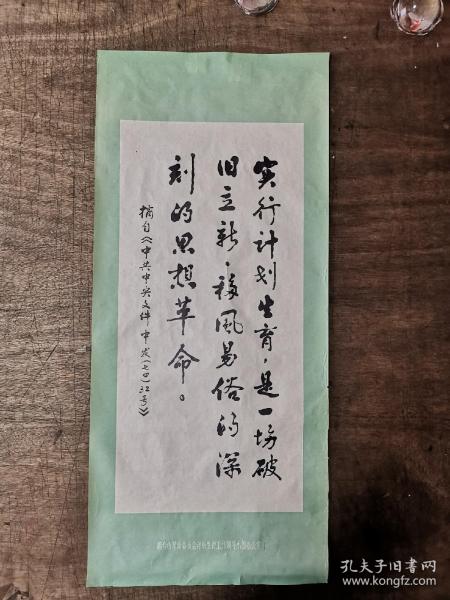 实行计划生育，是一场破
旧立新，移风易俗的深
刻的思想革命。
摘自《中共中央文件 中发（七四）32号》
孔夫子旧书网
www.kongfz.com